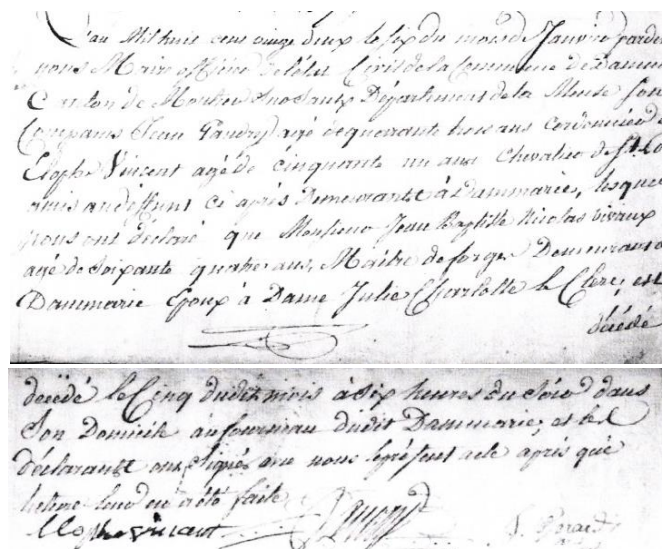 L'an Mil huit cens vingt deux le six du mois de Janvier pardev
nous Maire officier de l'état Civil de la Commune de Dammar
Canton de Montier Département de la Meuse Son
Comparus Jean agé de quarante trois ans Cordonnier
Elophe Vincent agé de cinquante un ans Chevalier de St Lo
amis au deffunt ci après Demeurants à Dammarie, lesque
nous ont déclaré que Monsieur Jean Baptiste Nicolas Vivaux
agé de Soixante quatre ans, Maître de forges Demeurant à
Dammarie Epoux à Dame Julie Charlotte le Clerc, est
décédé
décédé le Cinq dudit mois à Six heures du Soir dans
Son Domicile au fourneau dudit Dammarie; et les
déclarants ont Signés avec nous le présent acte après que
lecture leur en a été faite
Elophe Vincent